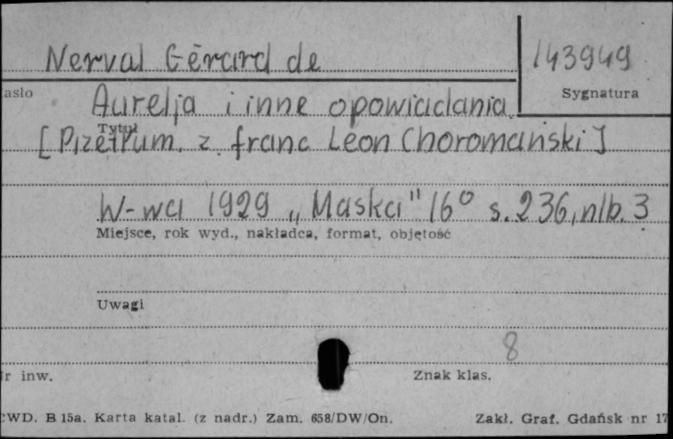 Nerval Gérard de
143949
asło
Sygnatura
Aurelja i inne opowiadania.
Tytuł
[Przetłum. z franc Leon Choromański]
W-wa 1929 „Maska" 16° s. 236, nlb. 3
Miejsce, rok wyd., nakładca, format, objętość
Uwagi
8
r inw.
Znak klas.
WD. B 15a. Karta katal. (z nadr.) Zam. 658/DW/On.
Zakł. Graf. Gdańsk nr 17